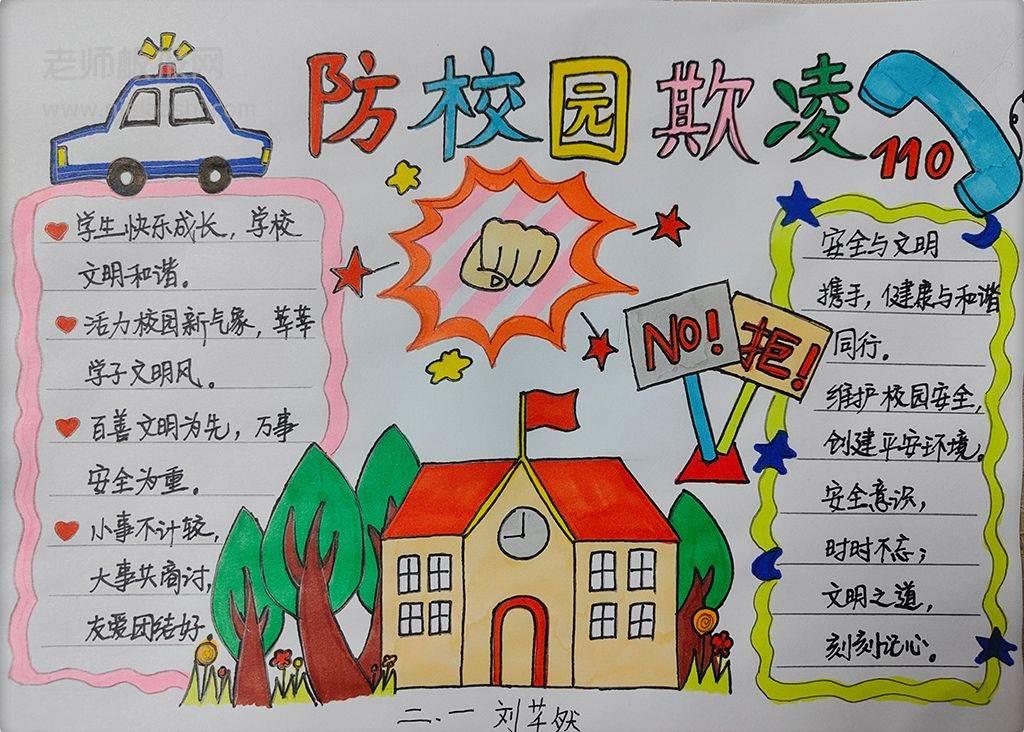 防校园欺凌
110
学生快乐成长，学校
文明和谐。
活力校园新气象，莘莘
学子文明风。
百善文明为先，万事
安全为重。
小事不计较，
大事共商讨，
友爱团结好。
NO!
拒!
安全与文明
携手，健康与和谐
同行。
维护校园安全，
创建平安环境。
安全意识，
时时不忘；
文明之道，
刻刻记心。
二.一 刘芊